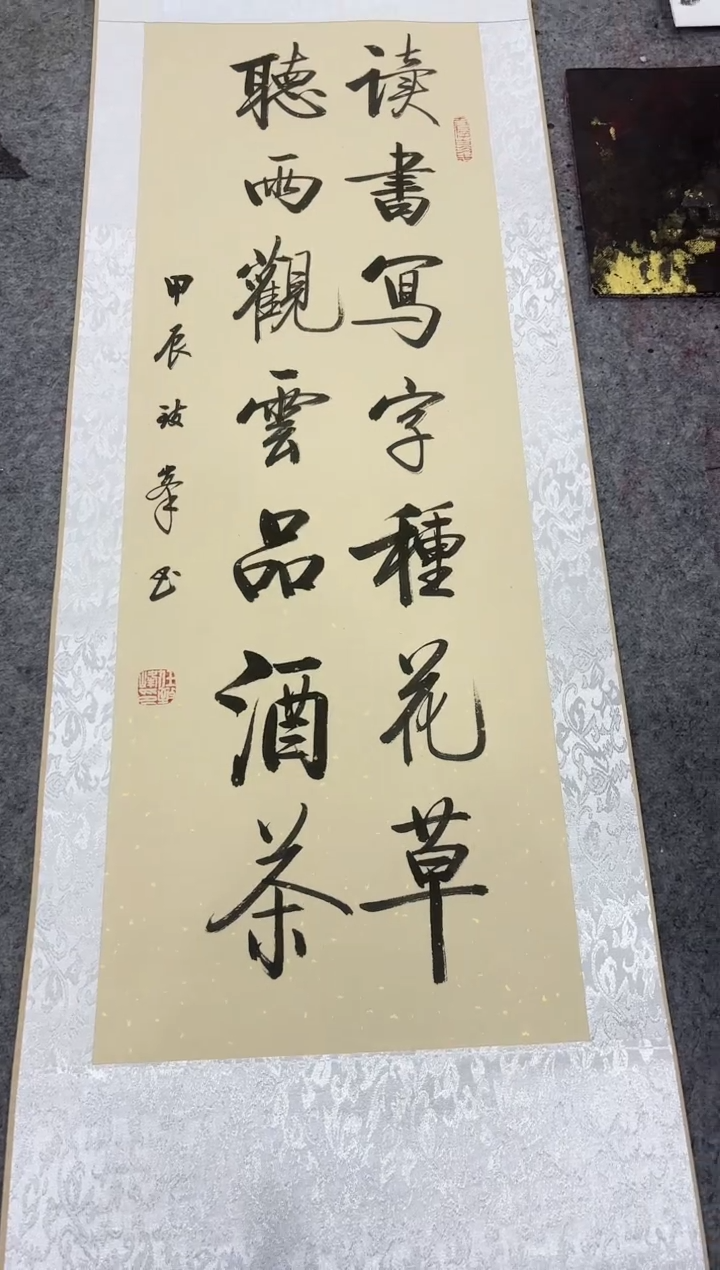 读書写字種花草
聽雨觀雲品酒茶
甲辰 峯书